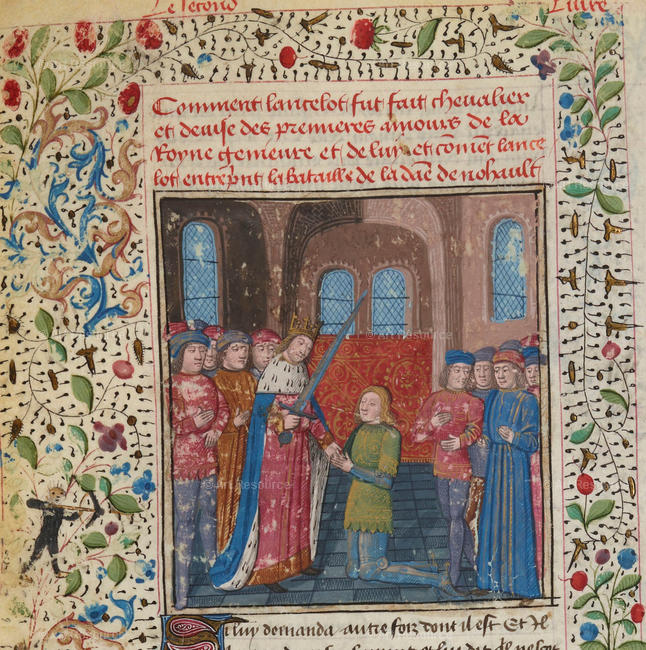 Le second Liure
Comment lancelot fut fait chevalier
et devise des premieres amours de la
Royne genieure et de luy et coment lance
lot entreprint la Bataille de la dame de nohault
Si luy demanda autre foiz dont il est Et Il
© Art Resource
© Art Resource
© Art Resource